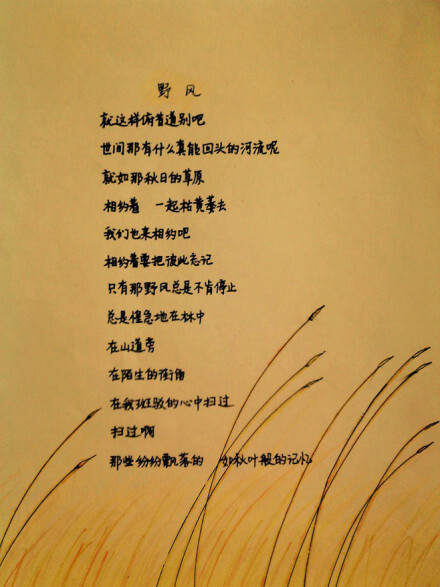 野风
就这样俯首道别吧
世间那有什么真能回头的河流呢
就如那秋日的草原
相约着 一起枯黄萎去
我们也来相约吧
相约着要把彼此忘记
只有那野风总是不肯停止
总是惶急地在林中
在山道旁
在陌生的街角
在我斑驳的心中扫过
扫过啊
那些纷纷飘落的 如秋叶般的记忆